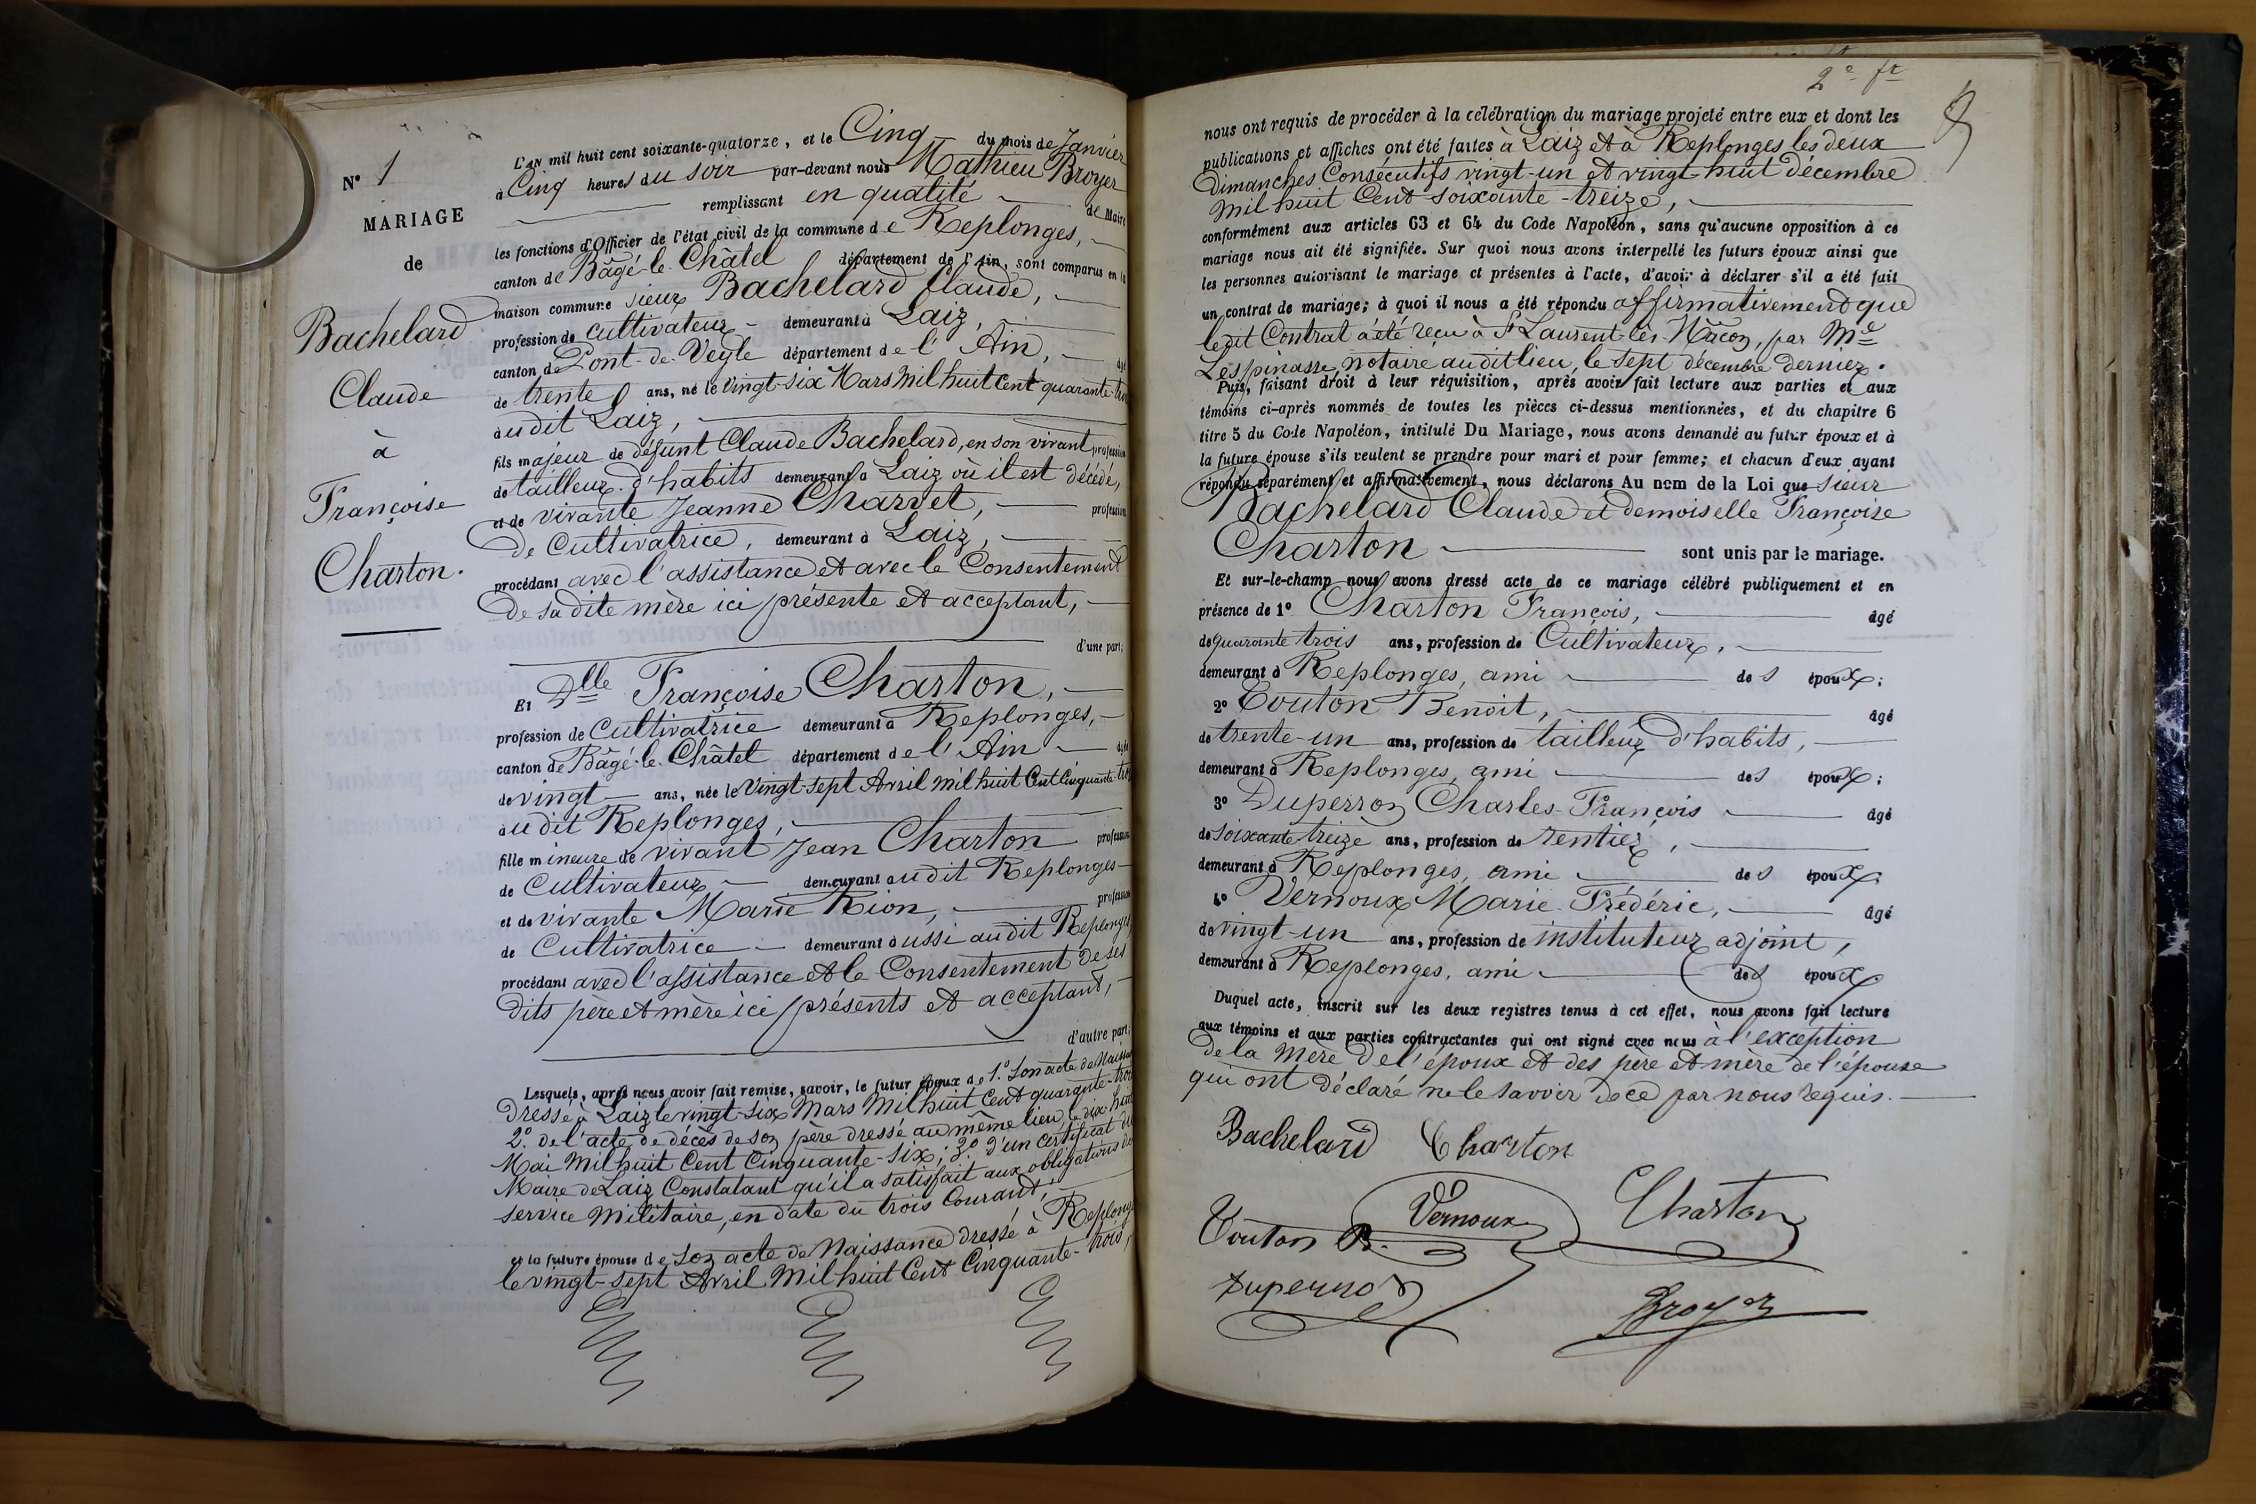 N° 1
MARIAGE
de
Bachelard
Claude
à
Françoise
Charton.
L'AN mil huit cent soixante-quatorze, et le Cinq du mois de Janvier
à Cinq heures du soir par-devant nous Mathieu Broyer
remplissant en qualité de Maire
les fonctions d'Officier de l'état civil de la commune de Replonges,
canton de Bâgé-le-Châtel département de l'Ain, sont comparus en la
maison commune sieur Bachelard Claude,
profession de cultivateur demeurant à Laiz,
canton de Pont-de-Veyle département de l'Ain, âgé
de trente ans, né le vingt-six Mars mil huit Cent quarante-trois
audit Laiz,
fils majeur de défunt Claude Bachelard, en son vivant profession
de tailleur d'habits demeurant à Laiz où il est décédé,
et de vivante Jeanne Charvet, profession
de Cultivatrice, demeurant à Laiz,
procédant avec l'assistance et avec le Consentement
de sa dite mère ici présente et acceptant,
d'une part;
Et Dlle Françoise Charton,
profession de Cultivatrice demeurant à Replonges,
canton de Bâgé-le-Châtel département de l'Ain âgée
de vingt ans, née le Vingt-sept Avril mil huit Cent Cinquante-trois
audit Replonges,
fille mineure de vivant Jean Charton profession
de Cultivateur demeurant audit Replonges
et de vivante Marie Rion, profession
de Cultivatrice demeurant aussi audit Replonges
procédant avec l'assistance et le Consentement de ses
dits père et mère ici présents et acceptant,
d'autre part;
Lesquels, après nous avoir fait remise, savoir, le futur époux de 1.° Son acte de Naissance
dressé à Laiz le vingt-six Mars Mil huit Cent quarante-trois
2.° de l'acte de décès de son père dressé au même lieu le dix-huit
Mai Mil huit Cent Cinquante-six; 3.° d'un certificat du
Maire de Laiz Constatant qu'il a satisfait aux obligations du
service Militaire, en date du trois Courant,
et la future épouse de Son acte de Naissance dressé à Replonges
le vingt-sept Avril Mil huit Cent Cinquante-trois,
2e ft
nous ont requis de procéder à la célébration du mariage projeté entre eux et dont les
publications et affiches ont été faites à Laiz et à Replonges les deux
Dimanches Consécutifs vingt-un et vingt-huit décembre
mil huit Cent soixante-treize,
conformément aux articles 63 et 64 du Code Napoléon, sans qu'aucune opposition à ce
mariage nous ait été signifiée. Sur quoi nous avons interpellé les futurs époux ainsi que
les personnes autorisant le mariage et présentes à l'acte, d'avoir à déclarer s'il a été fait
un contrat de mariage; à quoi il nous a été répondu affirmativement que
ledit Contrat a été reçu à St Laurent-lès-Mâcon, par Me
Lespinasse notaire audit lieu, le sept décembre dernier.
Puis, faisant droit à leur réquisition, après avoir fait lecture aux parties et aux
témoins ci-après nommés de toutes les pièces ci-dessus mentionnées, et du chapitre 6
titre 5 du Code Napoléon, intitulé Du Mariage, nous avons demandé au futur époux et à
la future épouse s'ils veulent se prendre pour mari et pour femme; et chacun d'eux ayant
répondu séparément et affirmativement, nous déclarons Au nom de la Loi que sieur
Bachelard Claude et demoiselle Françoise
Charton sont unis par le mariage.
Et sur-le-champ nous avons dressé acte de ce mariage célébré publiquement et en
présence de 1° Charton François, âgé
de quarante trois ans, profession de Cultivateur,
demeurant à Replonges, ami des époux;
2° Touton Benoit, âgé
de trente-un ans, profession de tailleur d'habits,
demeurant à Replonges, ami des époux;
3° Duperron Charles-François âgé
de soixante treize ans, profession de rentier,
demeurant à Replonges, ami des époux;
4° Vernoux Marie-Frédéric, âgé
de vingt-un ans, profession de instituteur adjoint,
demeurant à Replonges, ami des époux
Duquel acte, inscrit sur les deux registres tenus à cet effet, nous avons fait lecture
aux témoins et aux parties contractantes qui ont signé avec nous à l'exception
de la Mère de l'époux et des père et mère de l'épouse
qui ont déclaré ne le savoir de ce par nous requis.
Bachelard Charton
Touton B. Vernoux Charton
Duperron Broyer